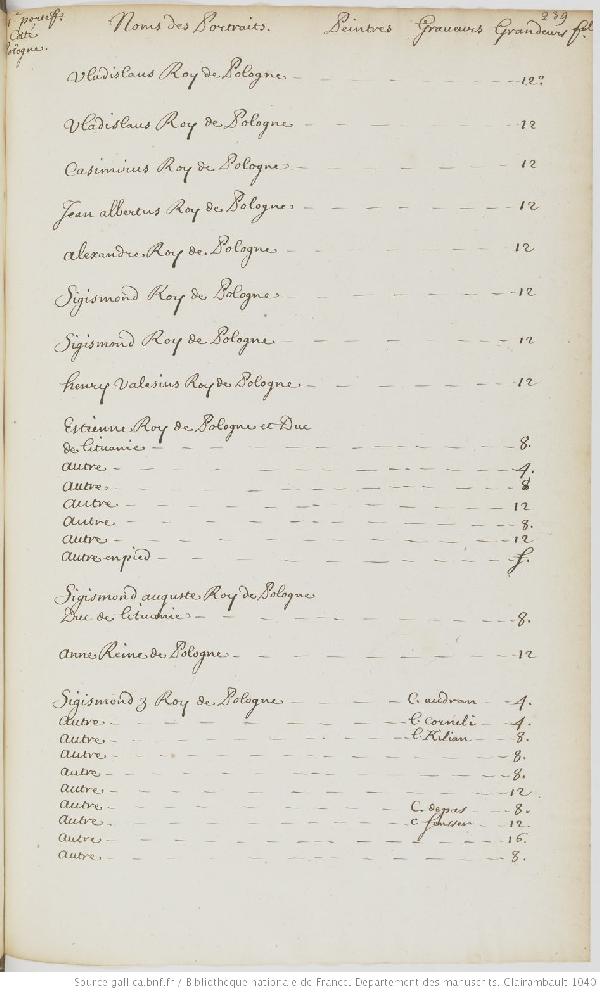 239
portef.
Pologne.
Noms des Portraits. Peintres Graveurs Grandeurs fol.
Vladislaus Roy de Pologne 12.
Vladislaus Roy de Pologne 12
Casimirus Roy de Pologne 12
Jean albertus Roy de Pologne 12
alexandre Roy de Pologne 12
Sigismond Roy de Pologne 12
Sigismond Roy de Pologne 12
henry Valesius Roy de Pologne 12
Estienne Roy de Pologne et Duc
de lituanie 8.
autre 4.
autre 8
autre 12
autre 8.
autre 12
autre en pied f.
Sigismond auguste Roy de Pologne
Duc de lituanie 8.
anne Reine de Pologne 12
Sigismond 3 Roy de Pologne C. audran 4.
autre 4.
autre Kilian 8.
autre 8.
autre 8.
autre 12
autre C. de pas 8.
autre 12.
autre 16.
autre 8.
Source gallica.bnf.fr / Bibliothèque nationale de France. Département des manuscrits. Clairambault 1040